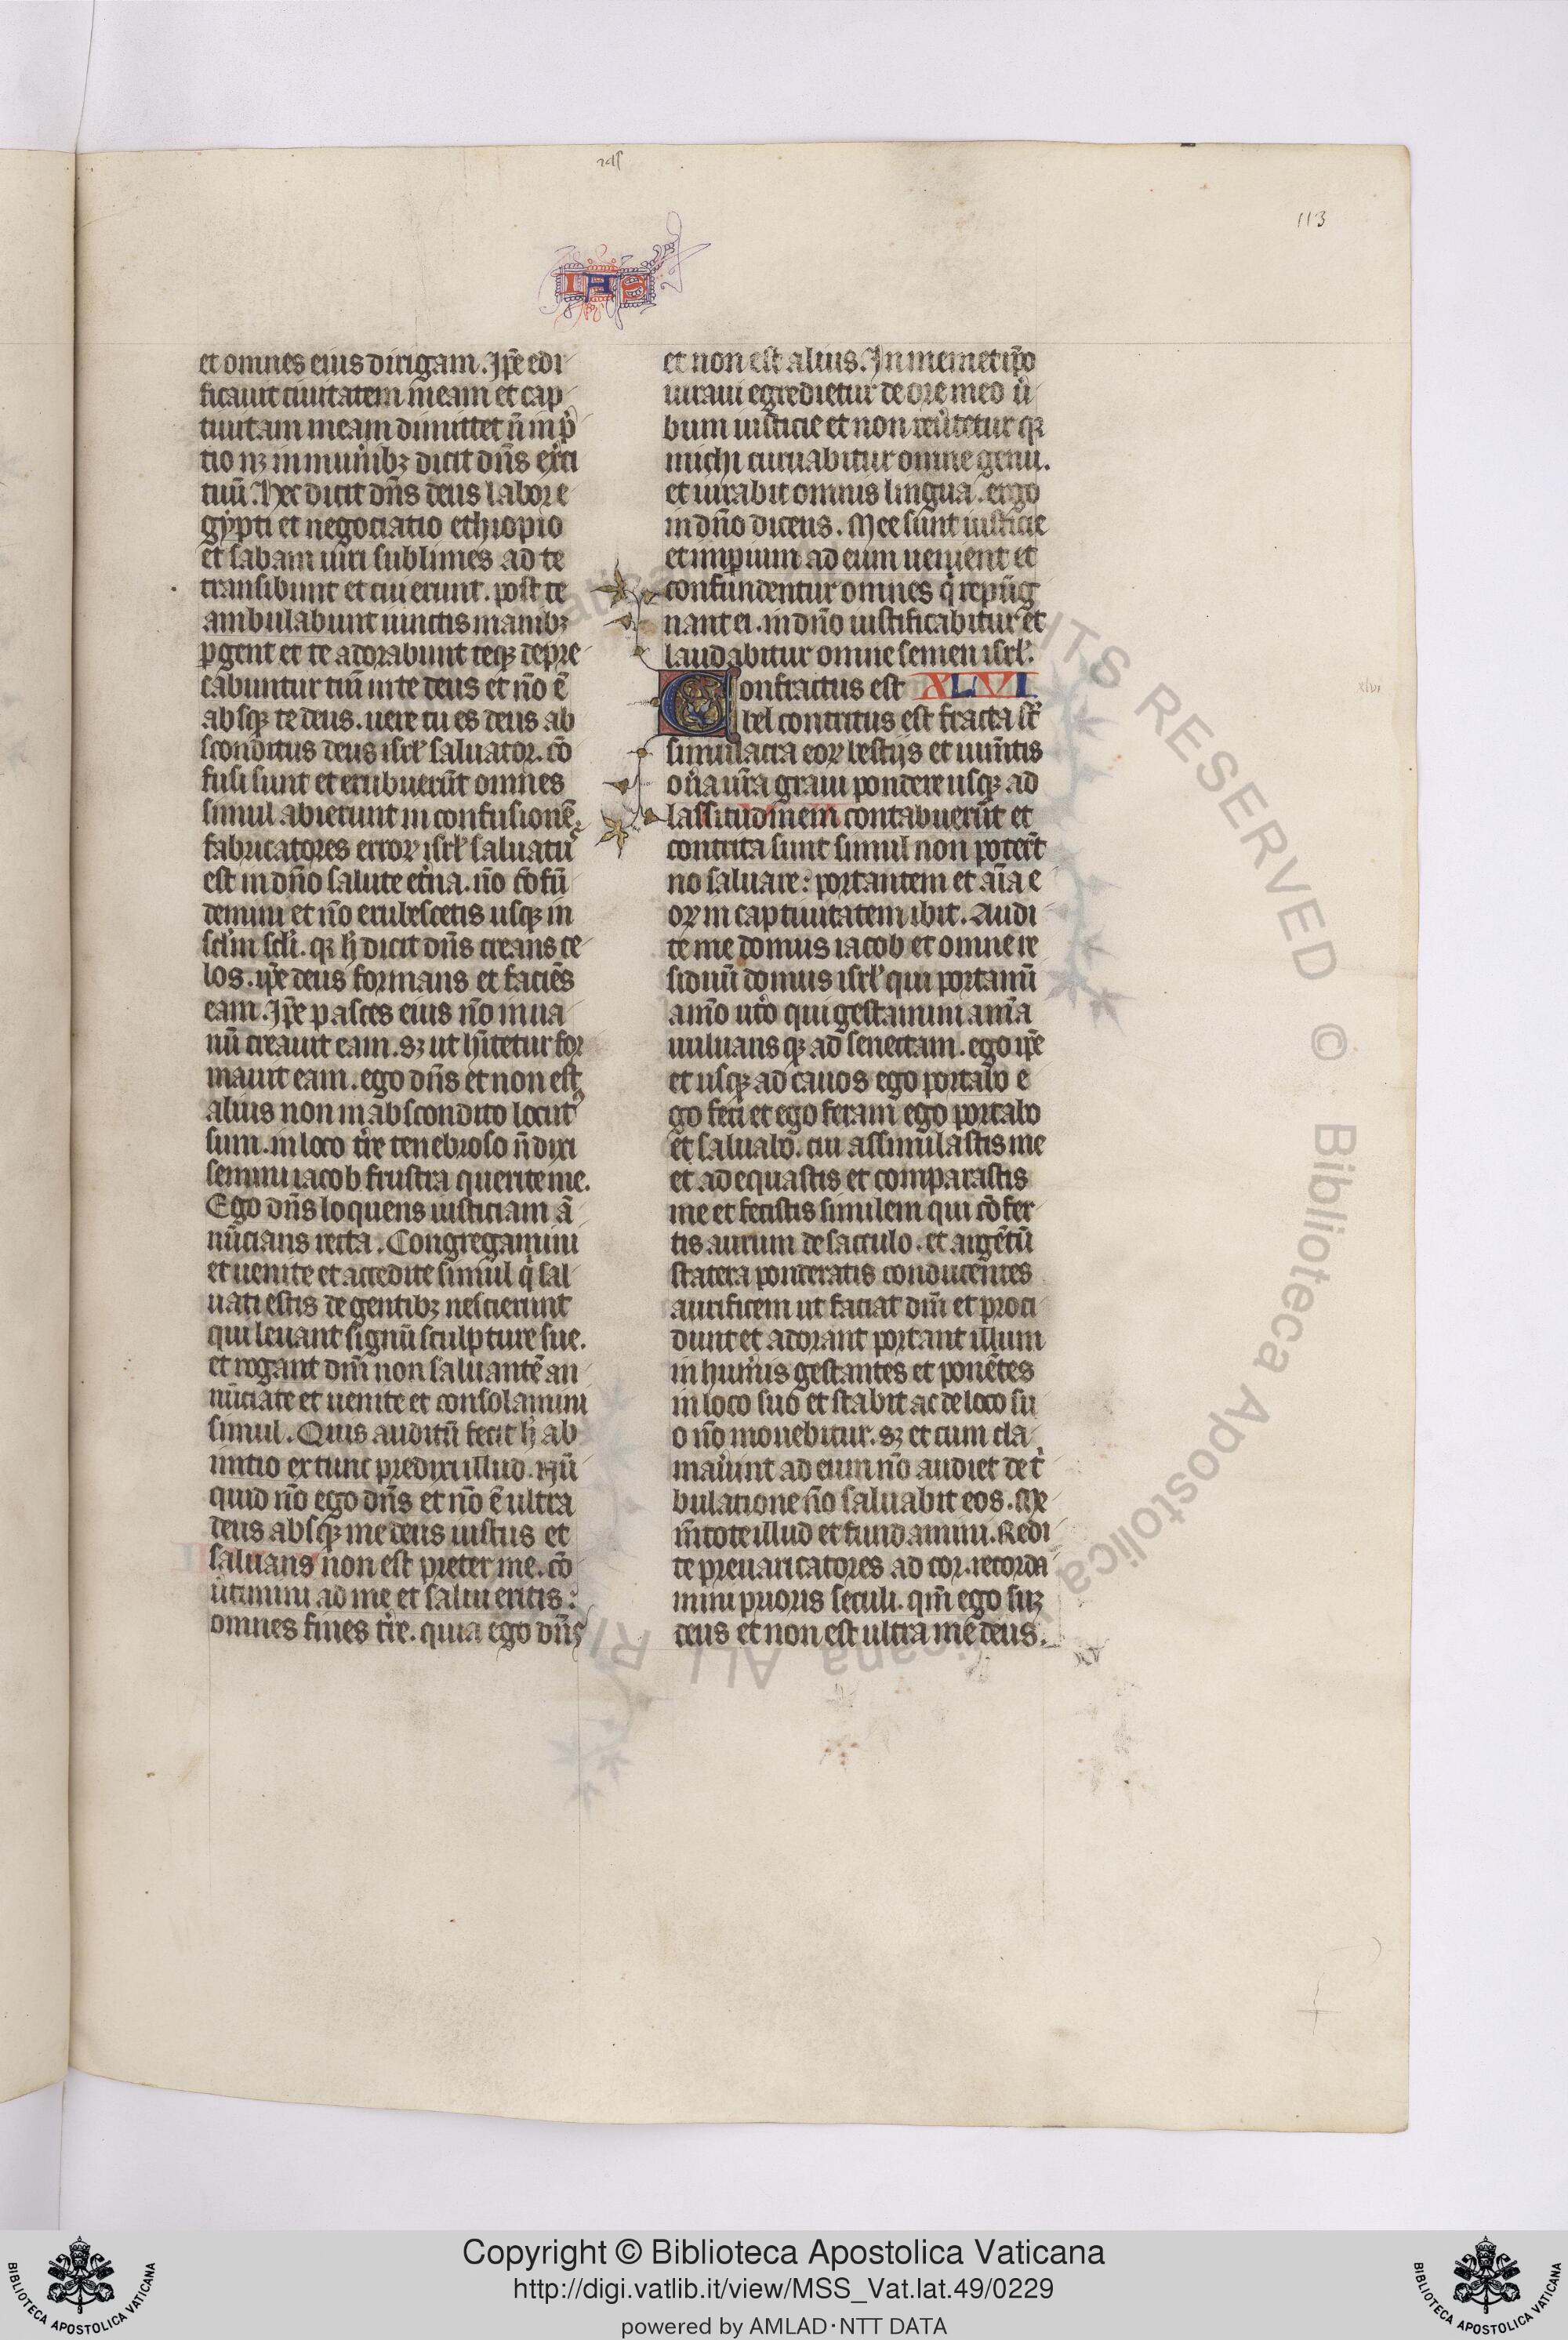 113
IAS
et omnes eius dirigam. Ip̄e edi
ficauit ciuitatem meam et cap
tiuitam meam dimittet n̄ in p̄
tio nꝫ in munibꝫ dicit dn̄s ex̄ci
tuū. Hec dicit dn̄s deus labor e
gypti et negociatio ethiopio
et sabam uiri sublimes ad te
transibunt et tui erunt. post te
ambulabunt uinctis manibꝫ
ꝑgent et te adorabunt teqꝫ depre
cabuntur tm̄ in te deus et nō ē
absqꝫ te deus. uere tu es deus ab
sconditus deus isrl̄ saluator. cō
fusi sunt et erubuerūt omnes
simul abierunt in confusionē.
fabricatores erroꝝ isrl̄ saluatꝰ
est in dn̄o salute et̄na. nō cōfū
demini et nō erubescetis usqꝫ in
sclm̄ scli̅. qꝛ h̄ dicit dn̄s creans ce
los. ip̄e deus formans et faciēs
eam. Ip̄e pasces eius nō in ua
nū creauit eam. sꝫ ut hītetur for
mauit eam. ego dn̄s et non est
alius non in abscondito locutꝰ
sum. in loco tr̄e tenebroso n̄ dixi
semini iacob frustra querite me.
Ego dn̄s loquens iusticiam ā
nūcians recta. Congregamini
et uenite et accedite simul q̇ sal
uati estis de gentibꝫ nescierunt
qui leuant signū sculpture sue.
et rogant dm̄ non saluantē an
nūciate et uenite et consolamini
simul. Quis auditū fecit h̄ ab
initio ex tunc predixi illud. Nū
quid nō ego dn̄s et nō ē ultra
deus absqꝫ me deus iustus et
saluans non est preter me. cō
ūtimini ad me et salui eritis:
omnes fines tr̄e. quia ego dn̄s
et non est alius. In memet ip̄o
iuraui egredietur de ore meo ū
bum iusticie et non reūtetur qꝛ
michi curuabitur omne genu.
et iurabit omnis lingua. ergo
in dn̄o dicens. Mee sunt iusticie
et imꝑium ad eum uenient et
confundentur omnes q̇ repūg
nant ei. in dn̄o iustificabitur et
laudabitur omne semen isrl̄.
Confractus est XLVI
bel contritus est fracta st̄
simulacra eoꝝ bestijs et iumētis
on̄a ur̄a graui pondere usqꝫ ad
lassitudinem contabuerūt et
contrita sunt simul non poterūt
no saluare: portantem et aīa e
oꝝ in captiuitatem ibit. Audi
te me domus iacob et omne re
siduū domus isrl̄ qui portamī
a meo ut̄o qui gestamini a mea
uuluans qꝫ ad senectam. ego ip̄e
et usqꝫ ad cauos ego portabo e
go feci et ego feram ego portabo
et saluabo. cui assimilastis me
et adequastis et comparastis
me et fecistis similem qui cōfer
tis aurum de sacculo. et argētū
statera ponderatis conducentes
aurificem ut faciat dm̄ et proci
dunt et adorant portant illum
in humis gestantes et ponētes
in loco suo et stabit ac de loco su
o nō mouebitur. sꝫ et cum cla
mauīnt ad eum nō audiet de tⁱ
bulatione nō saluabit eos. Me
m̄tote illud et fundamini. Redi
te preuaricatores ad cor. recorda
mini prioris seculi. qm̄ ego suꝫ
deus et non est ultra me deus.
xlvi
ALL RIGHTS RESERVED © Biblioteca Apostolica Vaticana
BIBLIOTECA APOSTOLICA VATICANA
Copyright © Biblioteca Apostolica Vaticana
http://digi.vatlib.it/view/MSS_Vat.lat.49/0229
powered by AMLAD·NTT DATA
BIBLIOTECA APOSTOLICA VATICANA